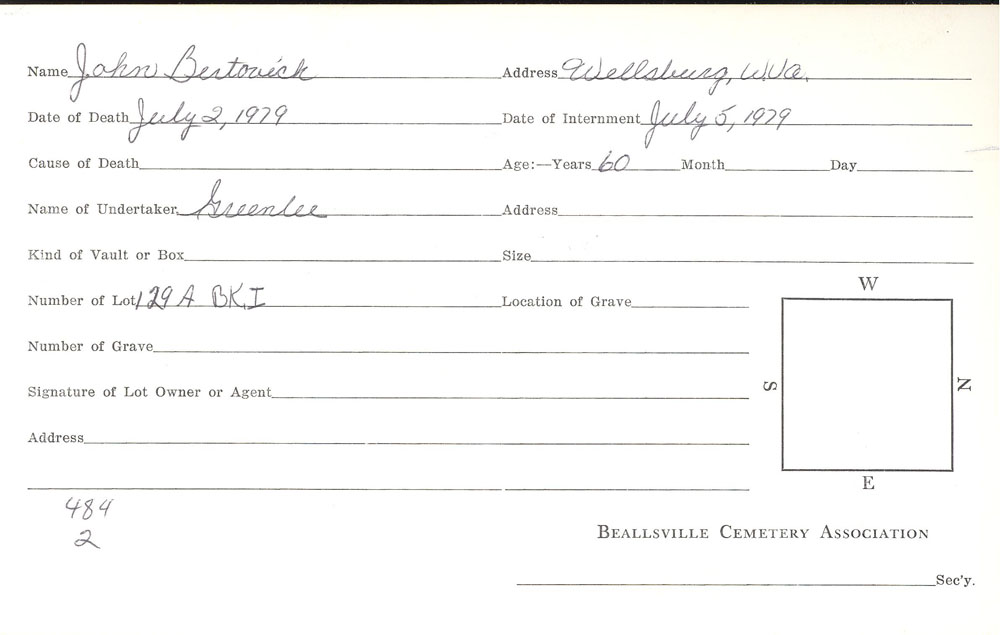 Name John Bertovick Address Wellsburg, W.Va.
Date of Death July 2, 1979 Date of Internment July 5, 1979
Cause of Death Age:—Years 60 Month Day
Name of Undertaker Greenlee Address
Kind of Vault or Box Size
Number of Lot 129 A BK I Location of Grave
W
Number of Grave
Signature of Lot Owner or Agent S N
Address
E
484
2
Beallsville Cemetery Association
Sec'y.